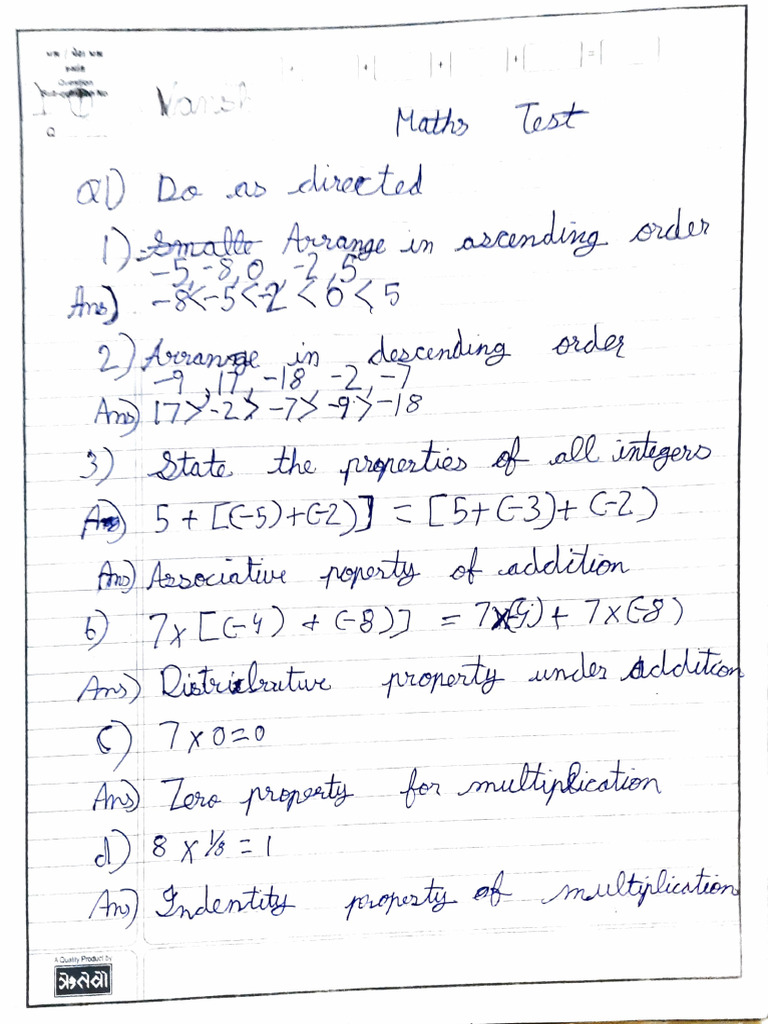 Question
Q
Maths Test
Q1) Do as directed
1) Smalle Arrange in ascending order
-5, -8, 0, -2, 5
Ans) -8<-5<-2<0<5
2) Arrange in descending order
-9, 17, -18, -2, -7
Ans) 17>-2>-7>-9>-18
3) State the properties of all integers
5+[(-5)+(-2)] = [5+(-3)+(-2)
Ans) Associative poperty of addition
b) 7×[(-4)+(-8)] = 7×(-4)+7×(-8)
Ans) Distributive property under addition
c) 7×0=0
Ans) Zero property for multiplication
d) 8×1/8=1
Ans) Indentity property of multiplication
A Quality Product by